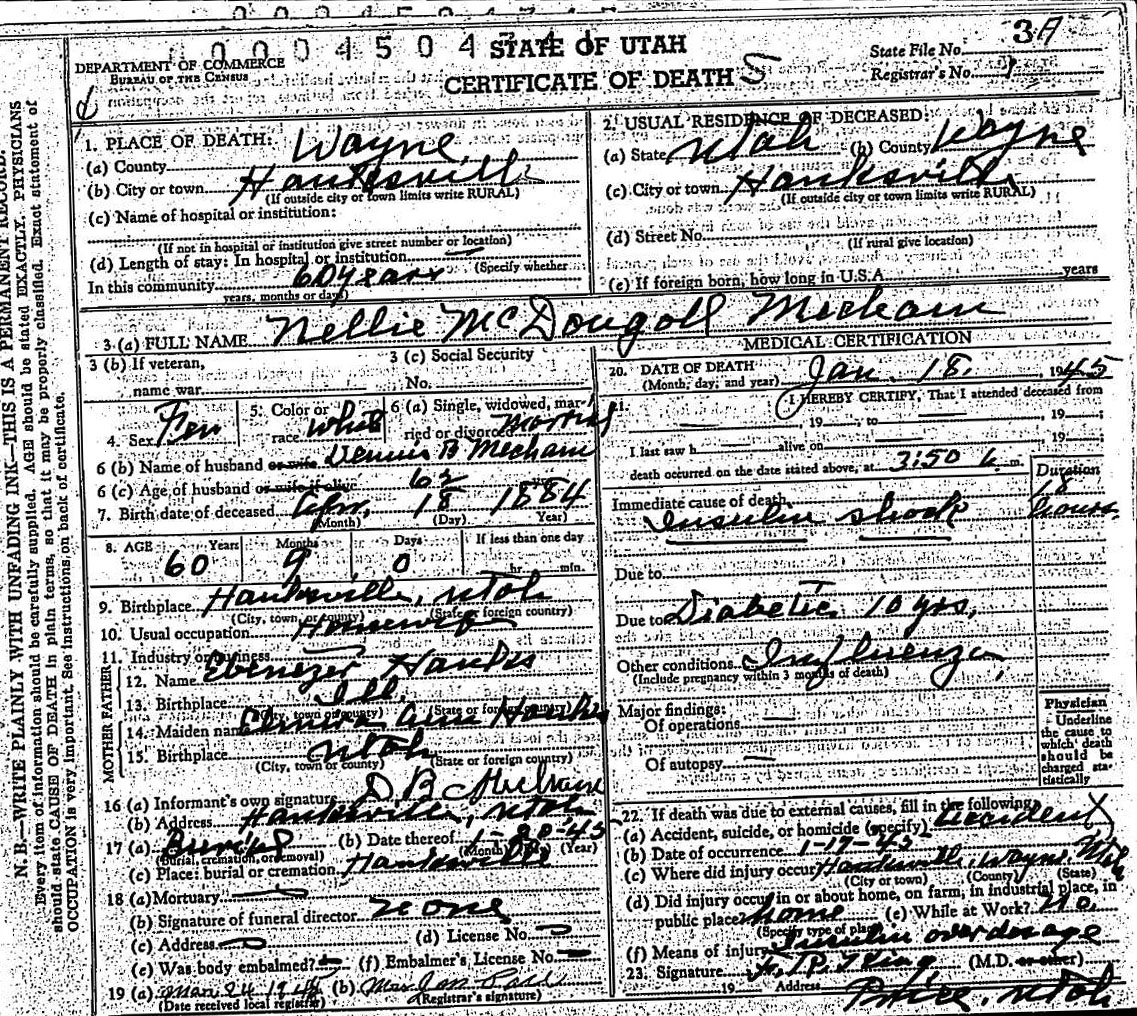 STATE OF UTAH
CERTIFICATE OF DEATH
DEPARTMENT OF COMMERCE
BUREAU OF THE CENSUS
State File No. 3A
Registrar's No. 1
N. B.—WRITE PLAINLY WITH UNFADING INK—THIS IS A PERMANENT RECORD.
Every item of information should be carefully supplied. AGE should be stated EXACTLY. PHYSICIANS
should state CAUSE OF DEATH in plain terms, so that it may be properly classified. Exact statement of
OCCUPATION is very important. See instructions on back of certificate.
1. PLACE OF DEATH:
(a) County Wayne
(b) City or town Hanksville
(If outside city or town limits write RURAL)
(c) Name of hospital or institution:
(If not in hospital or institution give street number or location)
(d) Length of stay: In hospital or institution
(Specify whether
In this community 60 years
years, months or days)
2. USUAL RESIDENCE OF DECEASED:
(a) State Utah (b) County Wayne
(c) City or town Hanksville
(If outside city or town limits write RURAL)
(d) Street No.
(If rural give location)
(e) If foreign born, how long in U.S.A. years
3 (a) FULL NAME Nellie McDougall Mecham
3 (b) If veteran,
name war
3 (c) Social Security
No.
4. Sex Fem
5. Color or
race white
6 (a) Single, widowed, mar-
ried or divorced married
6 (b) Name of husband or wife Dennis B Mecham
6 (c) Age of husband or wife if alive 62
7. Birth date of deceased Apr. 18 1884
(Month) (Day) Year)
8. AGE Years Months Days If less than one day
60 9 0 hr. min.
9. Birthplace Hanksville, Utah
(City, town or county) (State or foreign country)
10. Usual occupation Housewife
11. Industry or business
FATHER
12. Name Ebenezer Hanks
13. Birthplace Ill.
(City, town or county) (State or foreign country)
MOTHER
14. Maiden name Ann Hanks
15. Birthplace Utah
(City, town or county) (State or foreign country)
16 (a) Informant's own signature D B Mecham
(b) Address Hanksville, Utah
17 (a) Burial (b) Date thereof 1-20-45
(Burial, cremation, or removal) (Month) (Day) (Year)
(c) Place: burial or cremation Hanksville
18 (a) Mortuary
(b) Signature of funeral director none
(c) Address (d) License No.
(e) Was body embalmed? (f) Embalmer's License No.
19 (a) (b) Mrs
(Date received local registrar) (Registrar's signature)
MEDICAL CERTIFICATION
20. DATE OF DEATH Jan. 18, 1945
(Month, day, and year)
21. I HEREBY CERTIFY, That I attended deceased from
19 to 19
I last saw h alive on 19
death occurred on the date stated above, at 3:50 m.
Duration
Immediate cause of death 18
Insulin shock hours
Due to
Due to Diabetic 10 yrs.
Other conditions Influenza
(Include pregnancy within 3 months of death)
Major findings:
Of operations
Of autopsy
Physician
Underline
the cause to
which death
should be
charged sta-
tistically
22. If death was due to external causes, fill in the following:
(a) Accident, suicide, or homicide (specify) Accident
(b) Date of occurrence 1-17-45
(c) Where did injury occur? Hanksville, Wayne, Utah
(City or town) (County) (State)
(d) Did injury occur in or about home, on farm, in industrial place, in
public place? Home (e) While at Work? No.
(Specify type of place)
(f) Means of injury Insulin overdosage
23. Signature King (M.D. or other)
19 Address Price, Utah